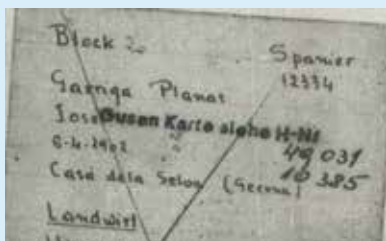 Block
Spanier
12334
Garriga Planas
José Gusen Karte siehe H-Nr
49 031
6-4-1902
10 385
Casá dela Selva (Gerona)
Landwirt